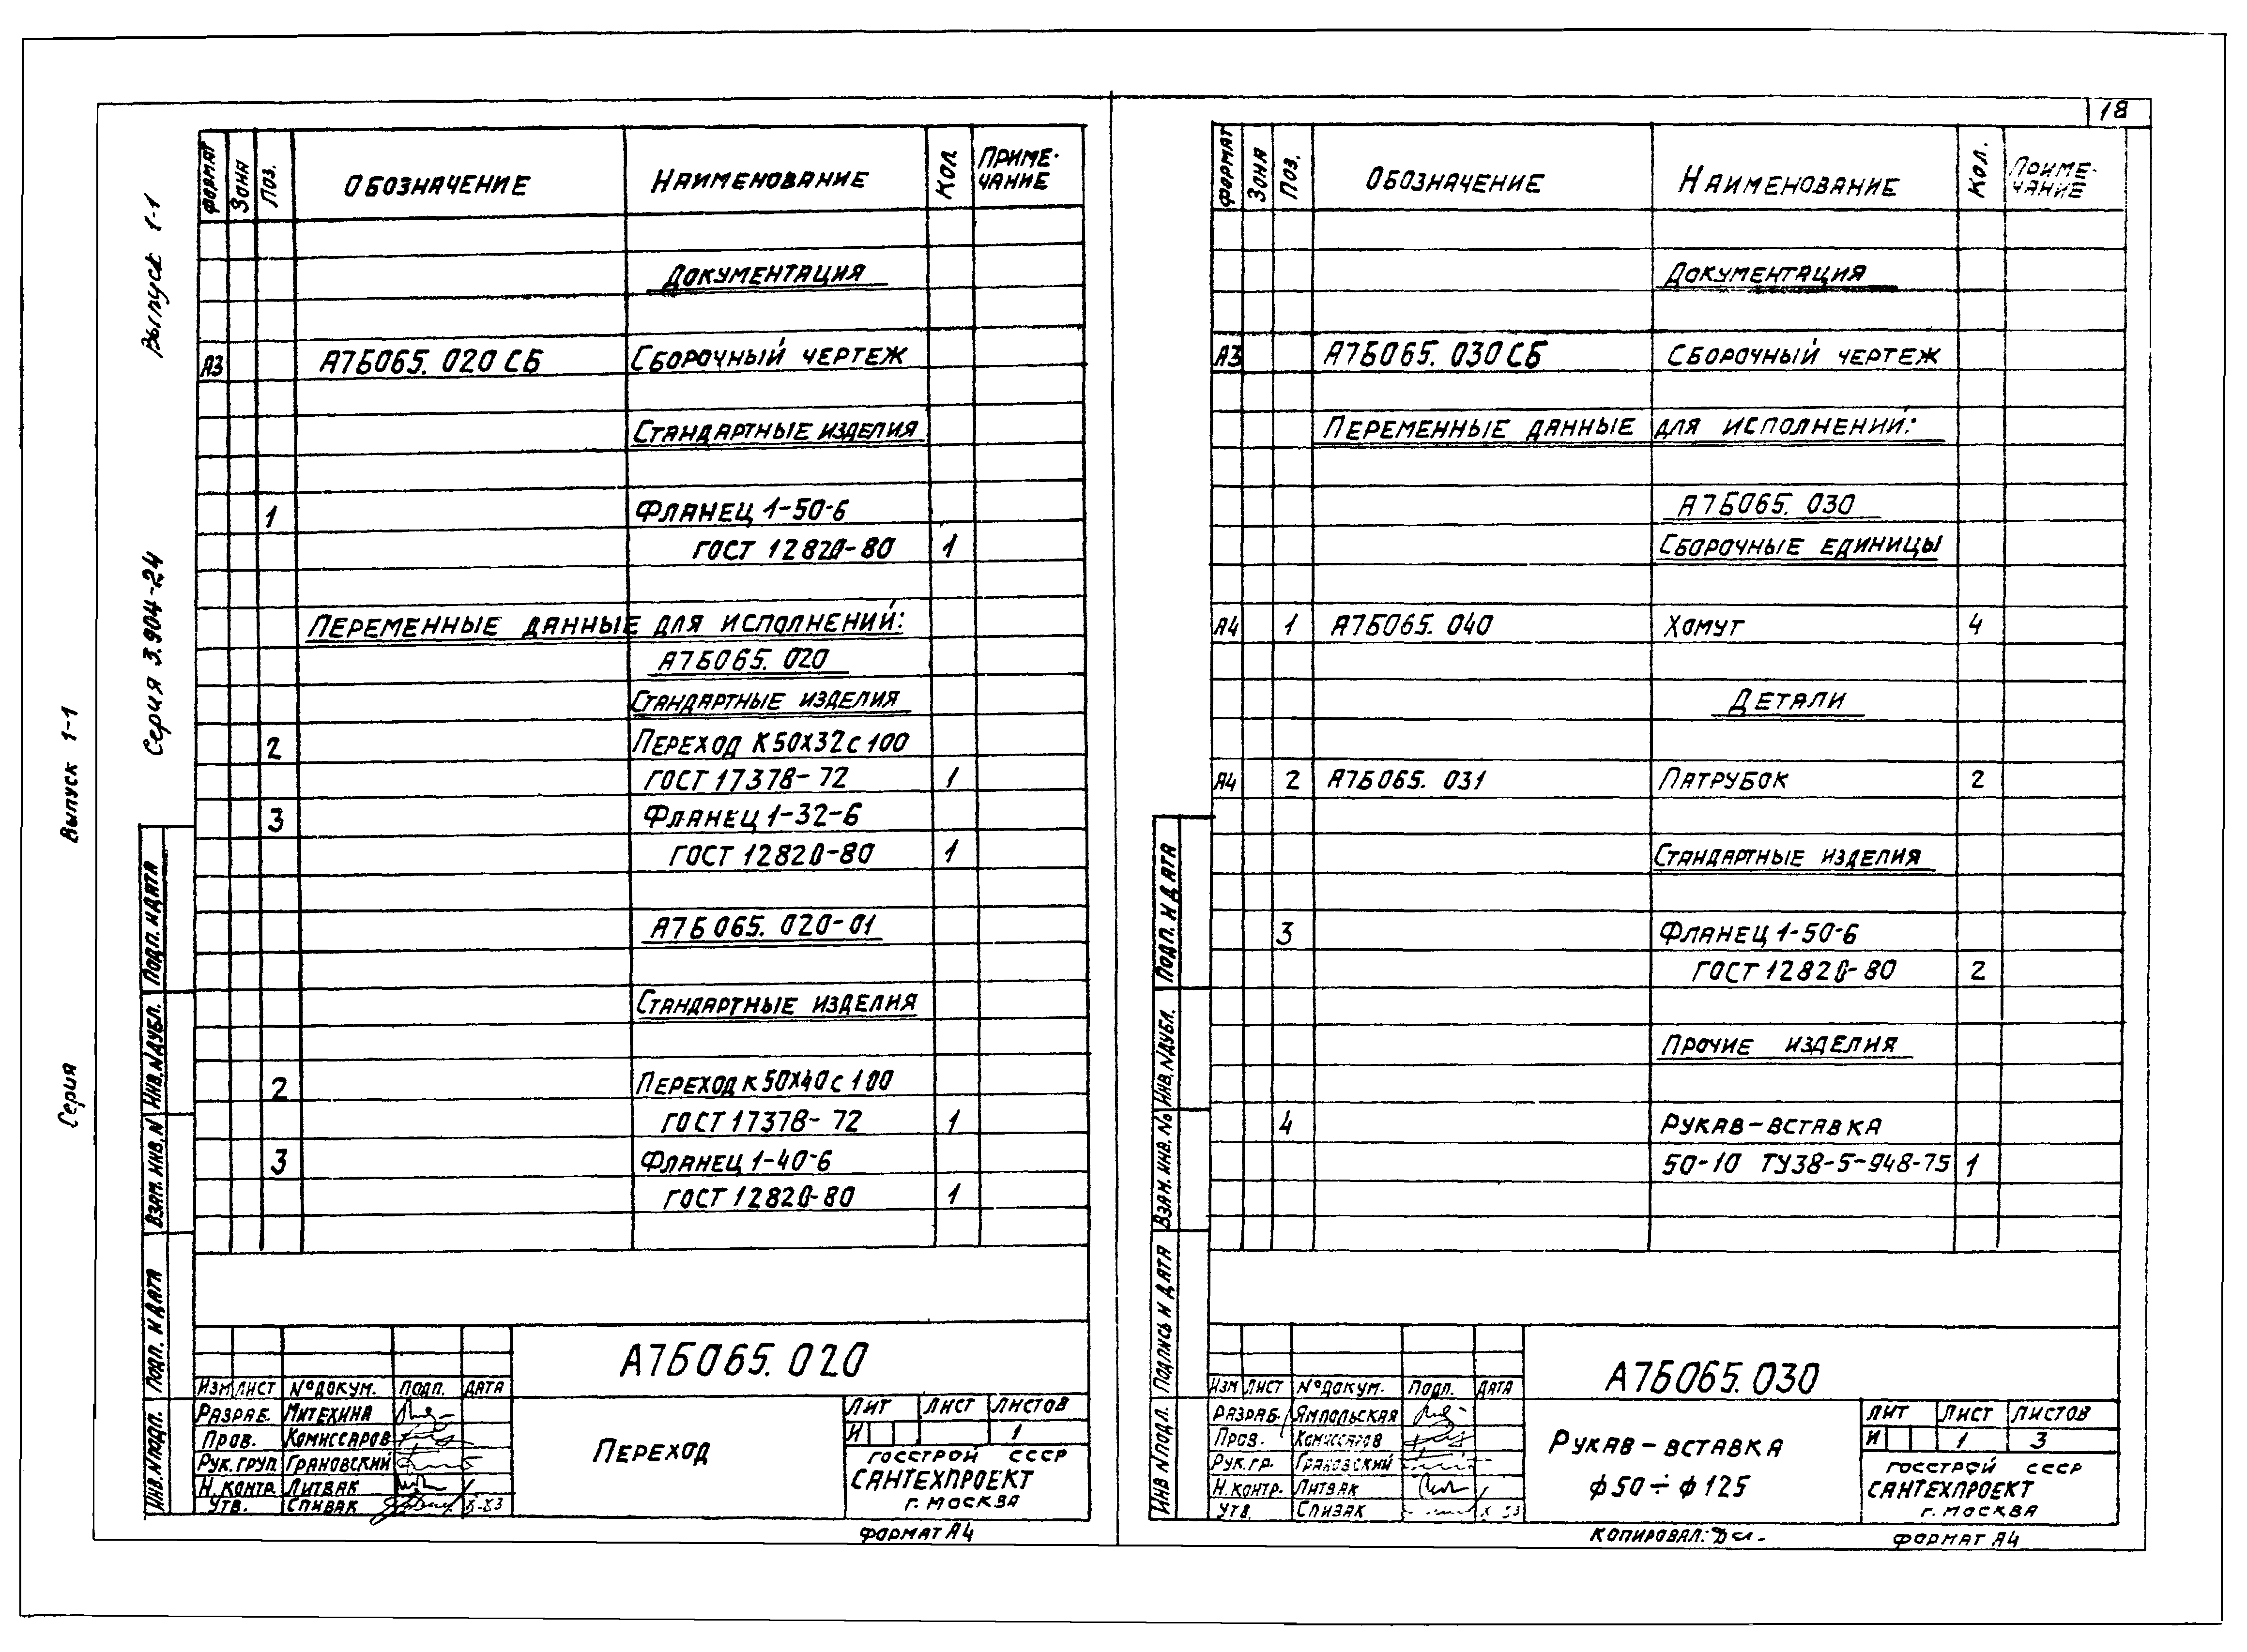 18
Серия Выпуск 1-1
Серия 3.904-24 Выпуск 1-1
ФОРМАТ ЗОНА ПОЗ. ОБОЗНАЧЕНИЕ НАИМЕНОВАНИЕ КОЛ. ПРИМЕ-
ЧАНИЕ
ДОКУМЕНТАЦИЯ
А3 А7Б065.020 СБ СБОРОЧНЫЙ ЧЕРТЕЖ
СТАНДАРТНЫЕ ИЗДЕЛИЯ
1 ФЛАНЕЦ 1-50-6
ГОСТ 12820-80 1
ПЕРЕМЕННЫЕ ДАННЫЕ ДЛЯ ИСПОЛНЕНИЙ:
А7Б065.020
СТАНДАРТНЫЕ ИЗДЕЛИЯ
2 ПЕРЕХОД К 50Х32 С 100
ГОСТ 17378-72 1
3 ФЛАНЕЦ 1-32-6
ГОСТ 12820-80 1
А7Б065.020-01
СТАНДАРТНЫЕ ИЗДЕЛИЯ
2 ПЕРЕХОД К 50Х40 С 100
ГОСТ 17378-72 1
3 ФЛАНЕЦ 1-40-6
ГОСТ 12820-80 1
ИНВ. N ПОДЛ. ПОДП. И ДАТА ВЗАМ. ИНВ. N ИНВ. N ДУБЛ. ПОДП. И ДАТА
А7Б065.020
ИЗМ ЛИСТ N° ДОКУМ. ПОДП. ДАТА
РАЗРАБ. МИТЕХИНА
ПРОВ. КОМИССАРОВ
РУК. ГРУП ГРАНОВСКИЙ
Н. КОНТР. ЛИТВАК
УТВ. СПИВАК
ПЕРЕХОД
ЛИТ ЛИСТ ЛИСТОВ
И 1
ГОССТРОЙ СССР
САНТЕХПРОЕКТ
Г. МОСКВА
ФОРМАТ А4
ФОРМАТ ЗОНА ПОЗ. ОБОЗНАЧЕНИЕ НАИМЕНОВАНИЕ КОЛ. ПРИМЕ-
ЧАНИЕ
ДОКУМЕНТАЦИЯ
А3 А7Б065.030 СБ СБОРОЧНЫЙ ЧЕРТЕЖ
ПЕРЕМЕННЫЕ ДАННЫЕ ДЛЯ ИСПОЛНЕНИЙ:
А7Б065.030
СБОРОЧНЫЕ ЕДИНИЦЫ
А4 1 А7Б065.040 ХОМУТ 4
ДЕТАЛИ
А4 2 А7Б065.031 ПАТРУБОК 2
СТАНДАРТНЫЕ ИЗДЕЛИЯ
3 ФЛАНЕЦ 1-50-6
ГОСТ 12820-80 2
ПРОЧИЕ ИЗДЕЛИЯ
4 РУКАВ-ВСТАВКА
50-10 ТУ38-5-948-75 1
ИНВ N ПОДЛ. ПОДПИСЬ И ДАТА ВЗАМ. ИНВ. № ИНВ. N ДУБЛ. ПОДП. И ДАТА
А7Б065.030
ИЗМ ЛИСТ N° ДОКУМ. ПОДП. ДАТА
РАЗРАБ. ЯМПОЛЬСКАЯ
ПРОВ. КОМИССАРОВ
РУК. ГР. ГРАНОВСКИЙ
Н. КОНТР. ЛИТВАК
УТВ. СПИВАК
РУКАВ-ВСТАВКА
ф50÷ф125
ЛИТ ЛИСТ ЛИСТОВ
И 1 3
ГОССТРОЙ СССР
САНТЕХПРОЕКТ
Г. МОСКВА
КОПИРОВАЛ:
ФОРМАТ А4